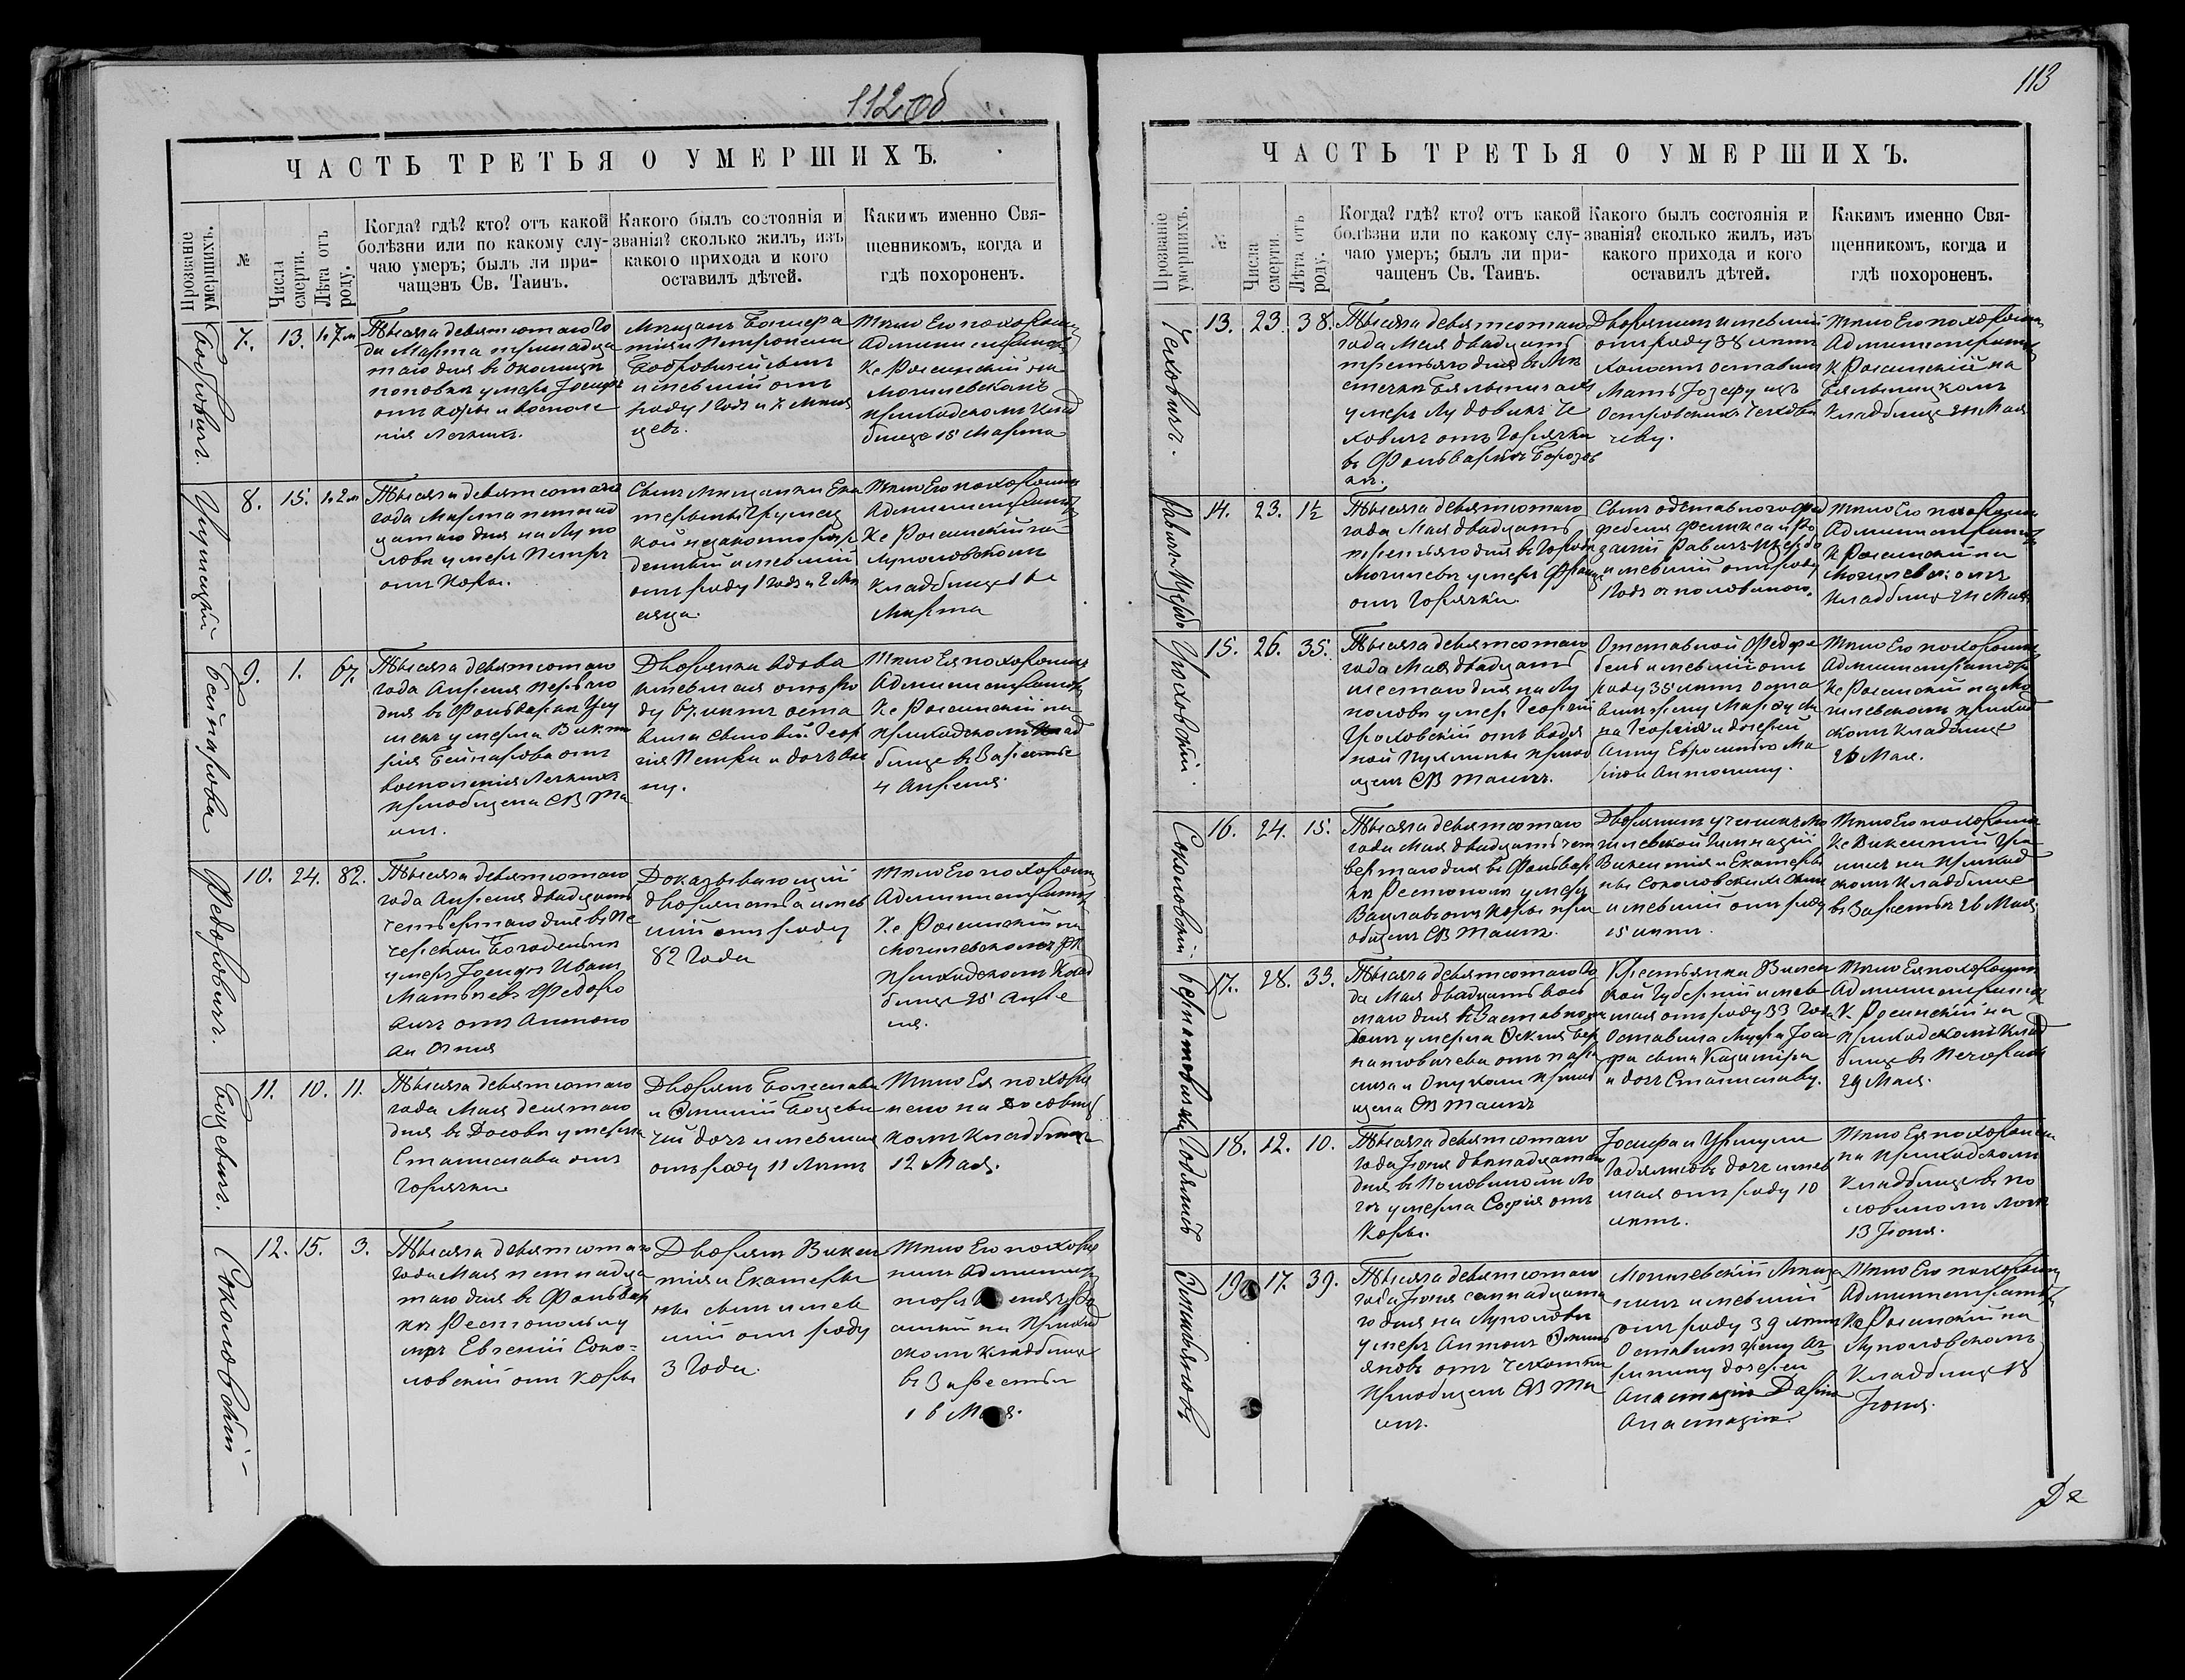 112 об
ЧАСТЬ ТРЕТЬЯ О УМЕРШИХЪ.
Прозваніе умершихъ.
№
Числа смерти.
Лѣта отъ роду.
Когда? гдѣ? кто? отъ какой
болѣзни или по какому слу-
чаю умеръ; былъ ли при-
чащенъ Св. Таинъ.
Какого былъ состоянія и
званія? сколько жилъ, изъ
какого прихода и кого
оставилъ дѣтей.
Какимъ именно Свя-
щенникомъ, когда и
гдѣ похороненъ.
Бобровичъ.
7. 13. 1 г 7 м
Тысяча девятсотаго го
да Марта тринадца
таго дня въ околицѣ
умеръ Іосифъ
отъ кори и воспале
нія легкихъ.
Мѣщанъ
Бобровичей сынъ
имѣвшій отъ
роду 1 годъ и 7 мѣся
цевъ.
Тѣло Его похоронилъ
Администраторъ
Кс Росинскій на
Могилевскомъ
приходскомъ клад
бищѣ 15 Марта
8. 15. 1 г 2 м
Тысяча девятсотаго
года Марта пятнад
цатаго дня на Лупо
ловѣ умеръ Петръ
отъ кори.
Сынъ мѣщанки Ека
терины
незаконнорож
денный имѣвшій
отъ роду 1 годъ и 2 мѣ
сяца.
Тѣло Его похоронилъ
Администраторъ
Кс Росинскій на
Луполовскомъ
кладбищѣ
Марта
Бейнарова
9. 1. 67.
Тысяча девятсотаго
года Апреля перваго
дня въ Фольваркѣ
умерла Викто
рія Бейнарова отъ
воспаленія легкихъ
приобщена СВ Та
инъ.
Дворянка вдова
имѣвшая отъ ро
ду 67 лѣтъ оста
вила сыновей Геор
гія Петра и дочь
ну.
Тѣло Ея похоронилъ
Администраторъ
Кс Росинскій на
приходскомъ клад
бищѣ въ Зарестье
4 Апреля.
Федоровичъ.
10. 24. 82.
Тысяча девятсотаго
года Апреля двадцать
четвертаго дня въ Пе
черской Богадельни
умеръ Іосифъ Иванъ
Матвѣевъ Федоро
вичъ отъ Антоно
ва Огня
Доказывающій
дворянство имѣв
шій отъ роду
82 года
Тѣло Его похоронилъ
Администраторъ
Кс Росинскій на
Могилевскомъ РК
приходскомъ клад
бищѣ 25 Апре
ля.
Боуевичъ.
11. 10. 11.
Тысяча девятсотаго
года Мая десятаго
дня въ Досовѣ умерла
Станислава отъ
горячки
Дворянъ Болеслава
и
дочь имѣвшая
отъ роду 11 лѣтъ
Тѣло Ея похоро
нено на
комъ кладбищѣ
12 Мая.
Соколовскій
12. 15. 3.
Тысяча девятсотаго
года Мая пятнадца
таго дня въ Фольвар
кѣ Рестополь у
меръ Евгеній Соко-
ловскій отъ кори
Дворянъ Викен
тія и Екатери
ны сынъ имѣв
шій отъ роду
3 года.
Тѣло Его похоро
нилъ Админист
раторъ
на приход
скомъ кладбищѣ
въ Зарестьи
16 Мая.
113
ЧАСТЬ ТРЕТЬЯ О УМЕРШИХЪ.
Прозваніе умершихъ.
№
Числа смерти.
Лѣта отъ роду.
Когда? гдѣ? кто? отъ какой
болѣзни или по какому слу-
чаю умеръ; былъ ли при-
чащенъ Св. Таинъ.
Какого былъ состоянія и
званія? сколько жилъ, изъ
какого прихода и кого
оставилъ дѣтей.
Какимъ именно Свя-
щенникомъ, когда и
гдѣ похороненъ.
Чеховичъ.
13. 23. 38.
Тысяча девятсотаго
года Мая двадцать
третьяго дня въ мѣ
стечкѣ Бялыничахъ
умеръ Лудовикъ Че
ховичъ отъ горячки
въ Фольваркѣ
Дворянинъ имѣвшій
отъ роду 38 лѣтъ
холостъ оставилъ
мать Іозефу изъ
Островскихъ Чехови
чеву.
Тѣло Его похоронилъ
Администраторъ
К Росинскій на
Бялыницкомъ
кладбищѣ 24 Мая
14. 23. 1½
Тысяча девятсотаго
года Мая двадцать
третьяго дня въ Городѣ
Могилевѣ умеръ Францъ
отъ горячки
Сынъ отставного фельд
фебеля Феликса и Ро
заліи
имѣвшій отъ роду
1 годъ с половиною.
Тѣло Его похоронилъ
Администраторъ
К Росинскій на
Могилевскомъ
кладбищѣ 24 Мая
Гроховскій.
15. 26. 35.
Тысяча девятсотаго
года Мая двадцать
шестаго дня на Лу
половѣ умеръ Георгій
Гроховскій отъ водя
ной Пухлины приоб
щенъ СВ Таинъ.
Отставной Фельдфе
бель имѣвшій отъ
роду 35 лѣтъ оста
вилъ жену Марію сы
на Георгія и дочерей
Анну Евфросинію Ма
рію и Антонину.
Тѣло Его похоронилъ
Администраторъ
Кс Росинскій на Мо
гилевскомъ приход
скомъ кладбищѣ
26 Мая.
Соколовскій
16. 24. 15.
Тысяча девятсотаго
года Мая двадцать чет
вертаго дня въ Фольвар
кѣ Рестополь умеръ
Вацлавъ отъ кори при
общенъ СВ Таинъ.
Дворянинъ ученикъ Мо
гилевской гимназіи
Викентія и Екатери
ны Соколовскихъ сынъ
имѣвшій отъ роду
15 лѣтъ.
Тѣло Его похоронилъ
Кс Викентій
на приход
скомъ кладбищѣ
въ Зарестьѣ 26 Мая
17. 28. 33.
Тысяча девятсотаго го
да Мая двадцать вось
маго дня въ
Домѣ умерла
отъ пара
лича и Опухоли приоб
щена СВ Таинъ
Крестьянка Вилен
ской Губерніи имѣв
шая отъ роду 33 года
Оставила мужа Іоси
фа сына Казимира
и дочь Станиславу.
Тѣло Ея похоронилъ
Администраторъ
К. Росинскій на
приходскомъ клад
бищѣ въ Печерскѣ
29 Мая.
18. 12. 10.
Тысяча девятсотаго
года Іюня двѣнадцатаго
дня въ Половинномъ Ло
гѣ умерла Софія отъ
кори.
Іосифа и Урсули
дочь имѣв
шая отъ роду 10
лѣтъ.
Тѣло Ея похоронено
на приходскомъ
кладбищѣ въ По
ловинномъ Логѣ
13 Іюня.
Емельяновъ
19. 17. 39.
Тысяча девятсотаго
года Іюня семнадцата
го дня на Луполовѣ
умеръ Антонъ Емель
яновъ отъ чехотки
приобщенъ СВ Та
инъ.
Могилевскій мѣща
нинъ имѣвшій
отъ роду 39 лѣтъ
Оставилъ жену
дочерей
Анастазію Дарію
Анастазію
Тѣло Его похоронилъ
Администраторъ
Кс Росинскій на
Луполовскомъ
кладбищѣ 18
Іюня.